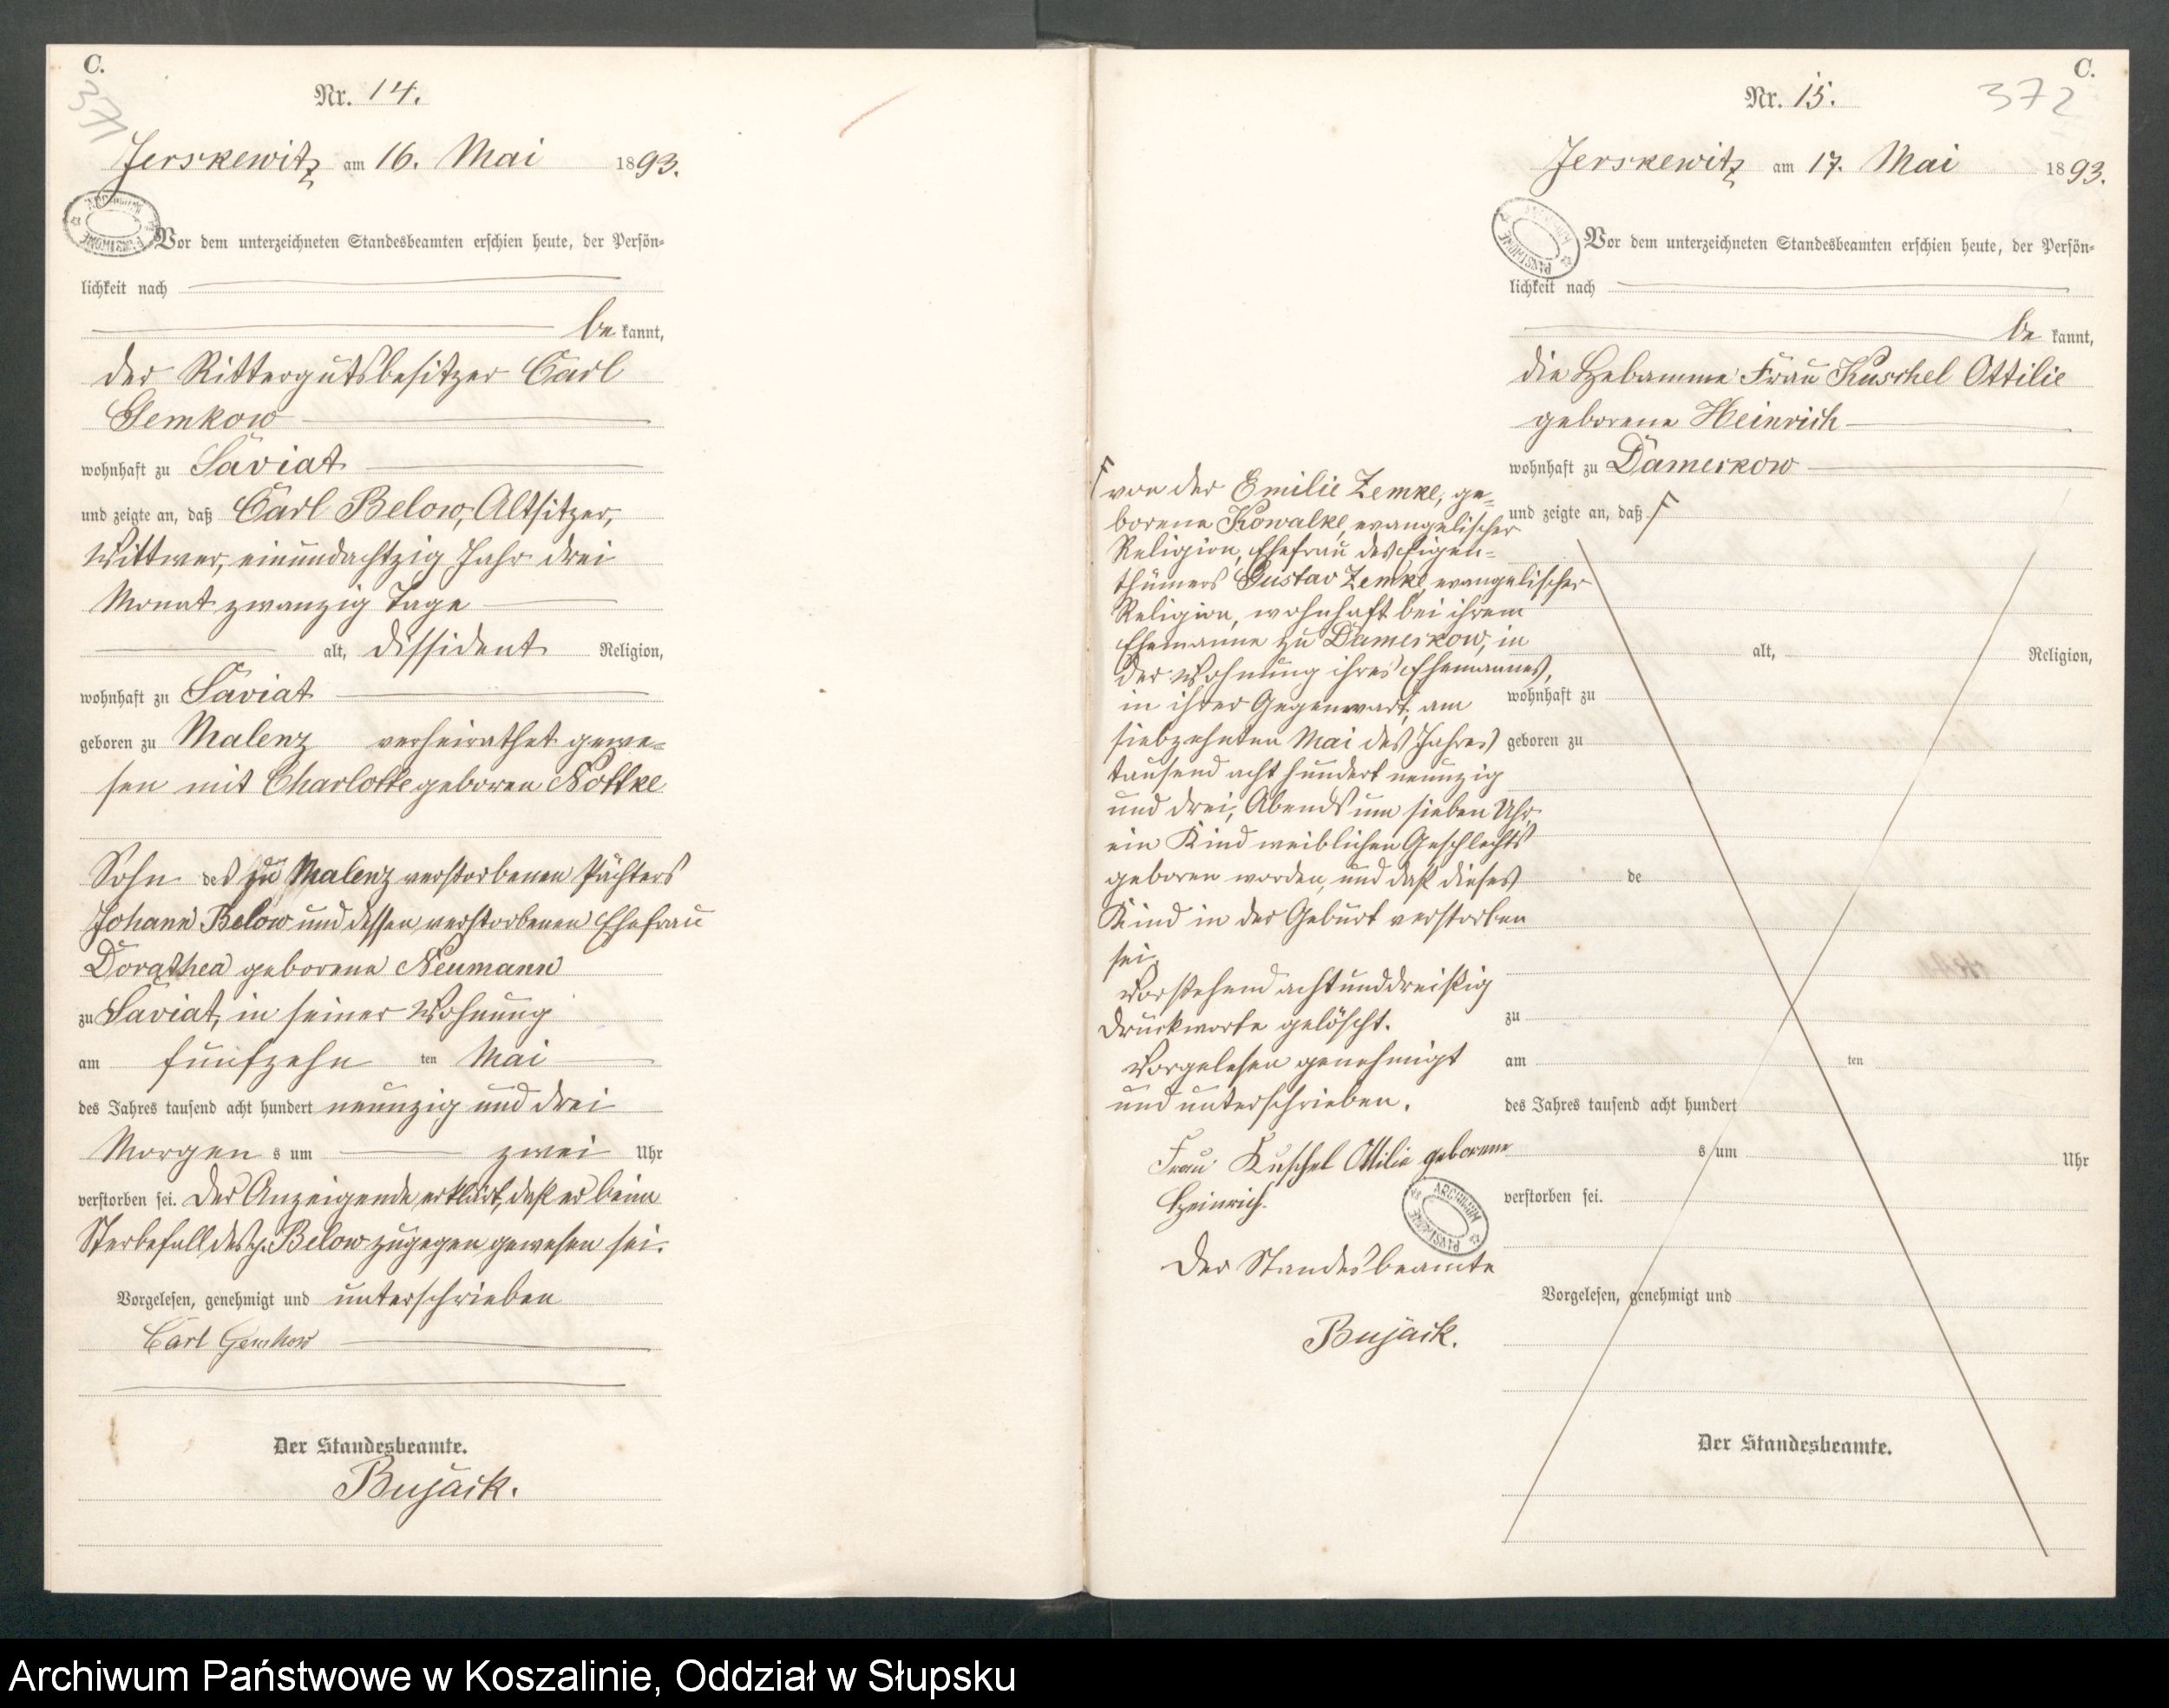 C.
371
Nr. 14.
Jerskewitz am 16. Mai 1893.
Vor dem unterzeichneten Standesbeamten erschien heute, der Persön-
lichkeit nach
be kannt,
der Rittergutsbesitzer Carl
Gemkow
wohnhaft zu Saviat
und zeigte an, daß Carl Below, Altsitzer,
Wittwer, einundachtzig Jahr drei
Monat zwanzig Tage
alt, dissident Religion,
wohnhaft zu Saviat
geboren zu Malenz verheirathet gewe-
sen mit Charlotte geboren Nottke
Sohn des zu Malenz verstorbenen Pächters
Johann Below und dessen verstorbenen Ehefrau
Dorathea geborene Neumann
zu Saviat, in seiner Wohnung
am fünfzehn ten Mai
des Jahres tausend acht hundert neunzig und drei
Morgen s um zwei Uhr
verstorben sei. Der Anzeigende erklärt, daß er beim
Sterbefall des p. Below zugegen gewesen sei.
Vorgelesen, genehmigt und unterschrieben
Carl Gemkow
Der Standesbeamte.
Bujack.
C.
372
Nr. 15.
Jerskewitz am 17. Mai 1893.
Vor dem unterzeichneten Standesbeamten erschien heute, der Persön-
lichkeit nach
be kannt,
die Hebamme Frau Kuschel Ottilie
geborene Heinrich
wohnhaft zu Damerkow
und zeigte an, daß
von der Emilie Zemke, ge-
borene Kowalke, evangelischer
Religion, Ehefrau des Eigen-
thümers Gustav Zemke, evangelischer
Religion, wohnhaft bei ihrem
Ehemanne zu Damerkow, in
der Wohnung ihres Ehemannes,
in ihrer Gegenwart, am
siebzehnten Mai des Jahres
tausend acht hundert neunzig
und drei, Abends um sieben Uhr,
ein Kind weiblichen Geschlechts
geboren worden, und daß dieses
Kind in der Geburt verstorben
sei.
Vorstehend achtunddreißig
Druckworte gelöscht.
Vorgelesen genehmigt
und unterschrieben.
Frau Kuschel Ottilie geborene
Heinrich.
Der Standesbeamte
Bujack.
alt, Religion,
wohnhaft zu
geboren zu
de
zu
am ten
des Jahres tausend acht hundert
s um Uhr
verstorben sei.
Vorgelesen, genehmigt und
Der Standesbeamte.
Archiwum Państwowe w Koszalinie, Oddział w Słupsku